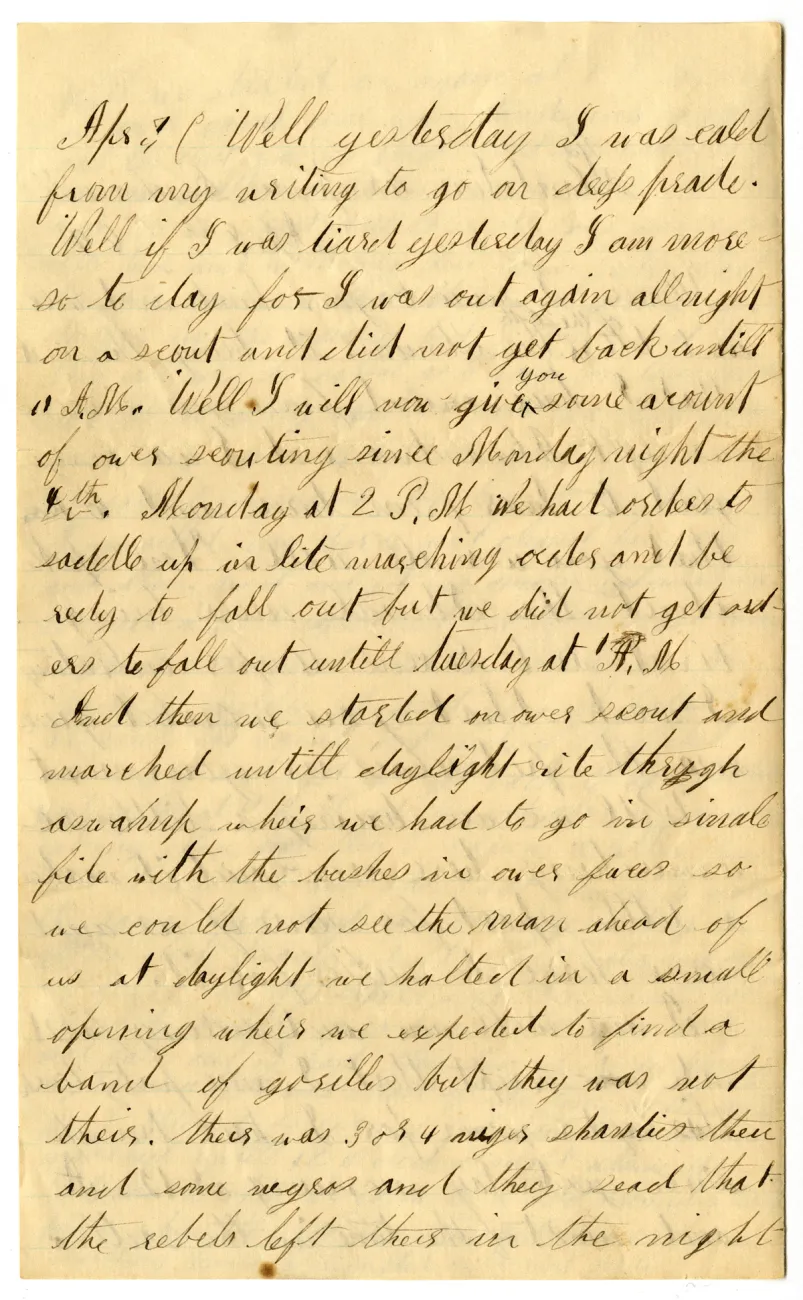 Apr 7 ( Well yesterday I was cald
from my writing to go on dress prade.
Well if I was tiard yesterday I am more
so to day for I was out again all night
on a scout and did not get back untill
11 A.M. Well I will now give you some acount
of ower scouting since Monday night the
4th. Monday at 2 P.M we had orders to
saddle up in lite marching order and be
redy to fall out but we did not get ord-
ers to fall out untill tuesday at 1 A. M
And then we started on ower scout and
marched untill daylight rite through
a swamp wheir we had to go in single
file with the bushes in ower faces so
we could not see the man ahead of
us at daylight we halted in a small
opening wheir we expected to find a
band of gorilles but they was not
their. their was 3 or 4 niger shanties their
and some negros and they sead that
the rebels left their in the night